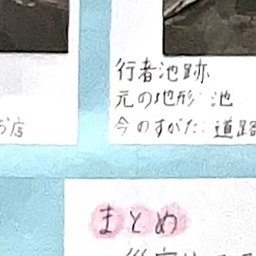 行者池跡
元の地形 池
今のすがた 道路
お店
まとめ